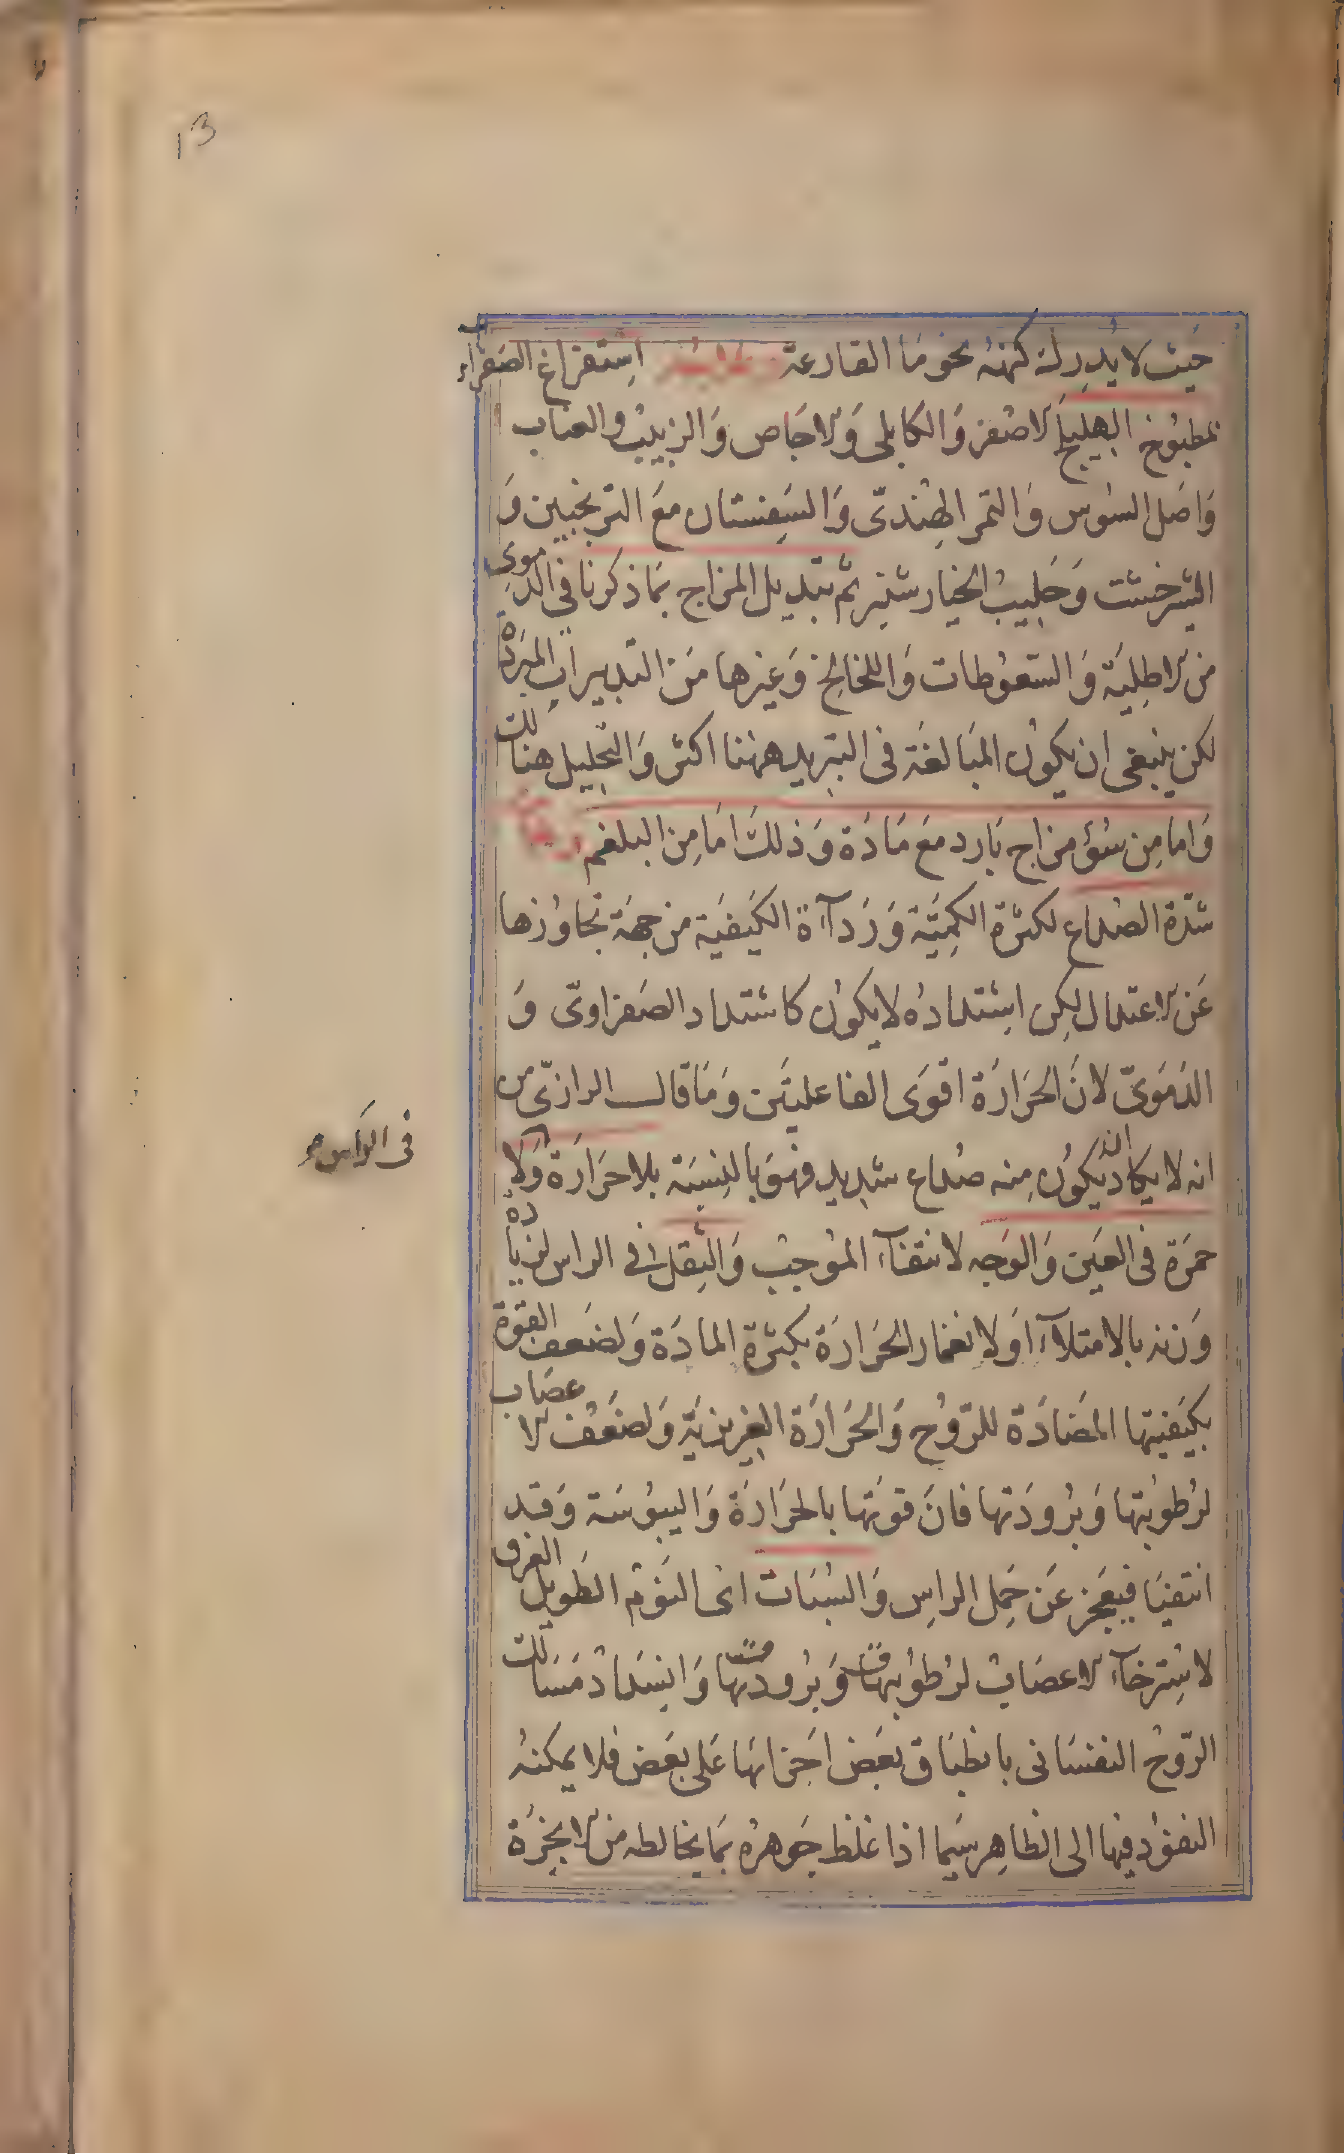 13
حيث لا يدرك كنهه نحو ما القارعة وعلاجه استفراغ الصفراء
بمطبوخ الهليلج الاصفر والكابلى والاجاص والزبيب والعناب
واصل السوس والتمر الهندىّ والسفستان مع الترنجبين و
الشرخشت وحليب الخيارشنبر ثم تبديل المزاج بما ذكرنا فى الدموى
من الاطلية والسعوطات واللخالخ وغيرها من التدبيرات المبردة
لكن ينبغى ان يكون المبالغة فى التبريد ههنا اكثر والتحليل هنالك
واما من سوء مزاج بارد مع مادة وذلك اما من البلغم
شدّة الصداع لكثرة الكميّة وردآءة الكيفية من جهة تجاوزها
عن الاعتدال لكن اشتداده لا يكون كاشتداد الصفراوىّ و
الدموىّ لانّ الحرارة اقوى الفاعليتين وما قال الرازىّ من
انه لا يكاد ان يكون منه صداع شديد فهو بالنسبة بلا حرارة ولا
فى الراس
حمرة فى العين والوجه لانتفآء الموجب والثقل فى الراس لزيادة
وزنه بالامتلآء او لانغمار الحرارة بكثرة المادة ولضعف القوة
بكيفيتها المضادة للروح والحرارة الغريزيّة ولضعف الاعصاب
لرطوبتها وبرودتها فانّ قوتها بالحرارة واليبوسة وقد
انتفيا فيعجز عن حمل الراس والسبات اى النوم الطويل الغرق
لاسترخآء الاعصاب لرطوبتها وبرودتها وانسداد مسالك
الروح النفسانى بانطباق بعض اجزائها على بعض فلا يمكنه
النفوذ فيها الى الظاهر سيما اذا غلظ جوهره بما يخالطه من الابخرة